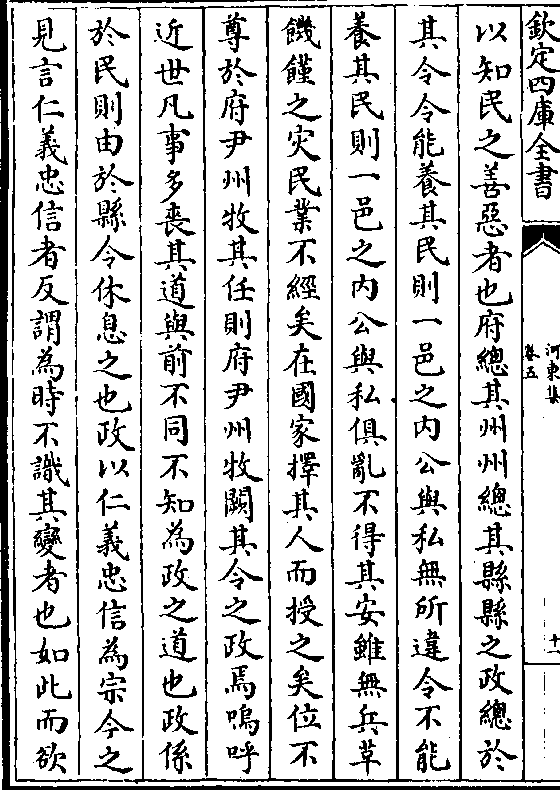 欽定四庫全書
河東集
卷五
十一
以知民之善惡者也府總其州州總其縣縣之政總於
其令令能養其民則一邑之内公與私無所違令不能
養其民則一邑之内公與私俱亂不得其安雖無兵革
饑饉之灾民業不經矣在國家擇其人而授之矣位不
尊於府尹州牧其任則府尹州牧闕其令之政焉嗚呼
近世凡事多喪其道與前不同不知為政之道也政係
於民則由於縣令休息之也政以仁義忠信為宗今之
見言仁義忠信者反謂為時不識其變者也如此而欲